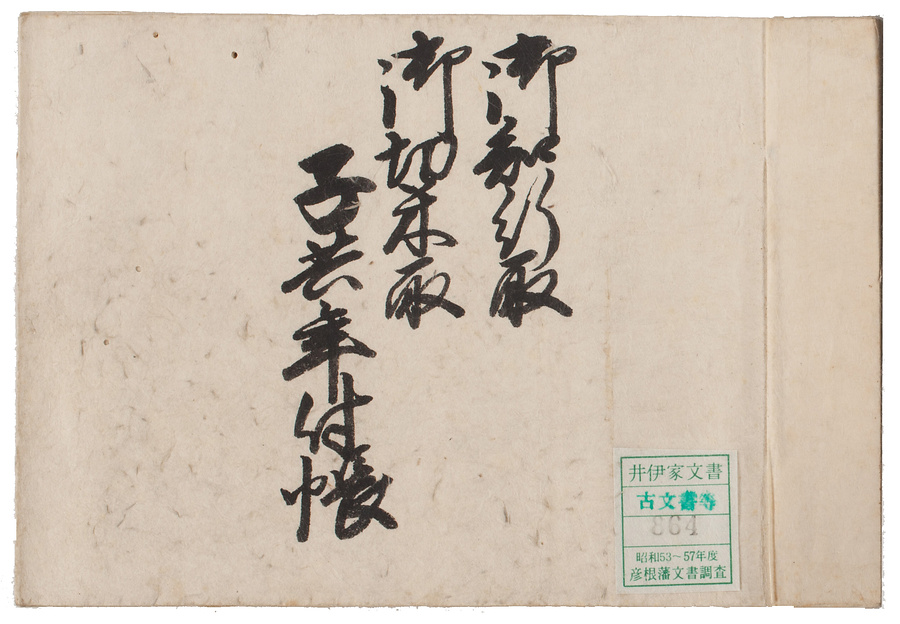 御知行取
御切米取
子共年付帳
井伊家文書
古文書等
864
昭和53~57年度
彦根藩文書調査